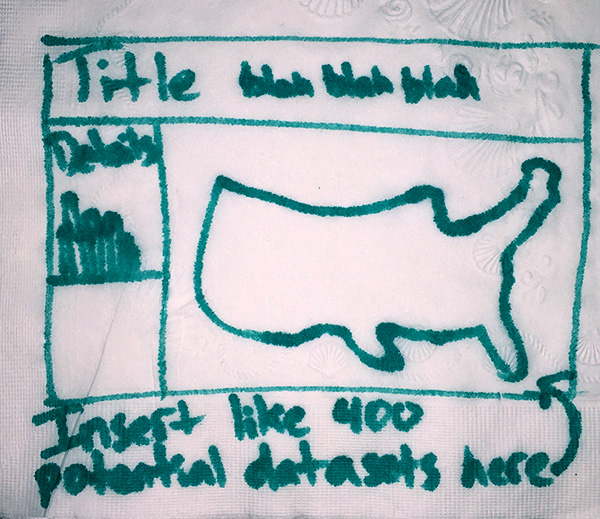 Title blah blah blah
Details
Insert like 400
potential datasets here